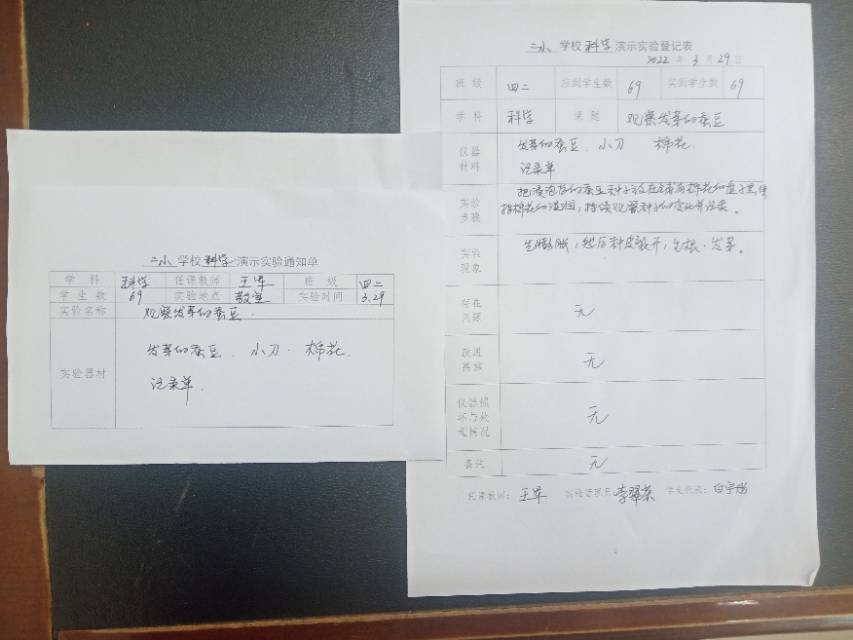 二小 学校 科学 演示实验通知单
学科 科学 任课教师 王军 班级 四二
学生数 69 实验地点 教室 实验时间 3.29
实验名称 观察发芽的蚕豆.
实验器材
发芽的蚕豆、小刀、棉花.
记录单.
二小 学校 科学 演示实验登记表
2022 年 3 月 29 日
班级 四二 应到学生数 69 实到学生数 69
学科 科学 课题 观察发芽的蚕豆
仪器材料
发芽的蚕豆、小刀 棉花.
记录单
实验步骤
把浸泡后的蚕豆种子放在铺有棉花的盘子里,保
持棉花的湿润,持续观察种子的变化并记录。
实验现象
先膨胀,然后种皮裂开,生根、发芽。
存在问题 无
改进措施 无
仪器损坏与处理情况 无
备注 无
任课教师: 王军 实验管理员: 李翠荣 学生代表: